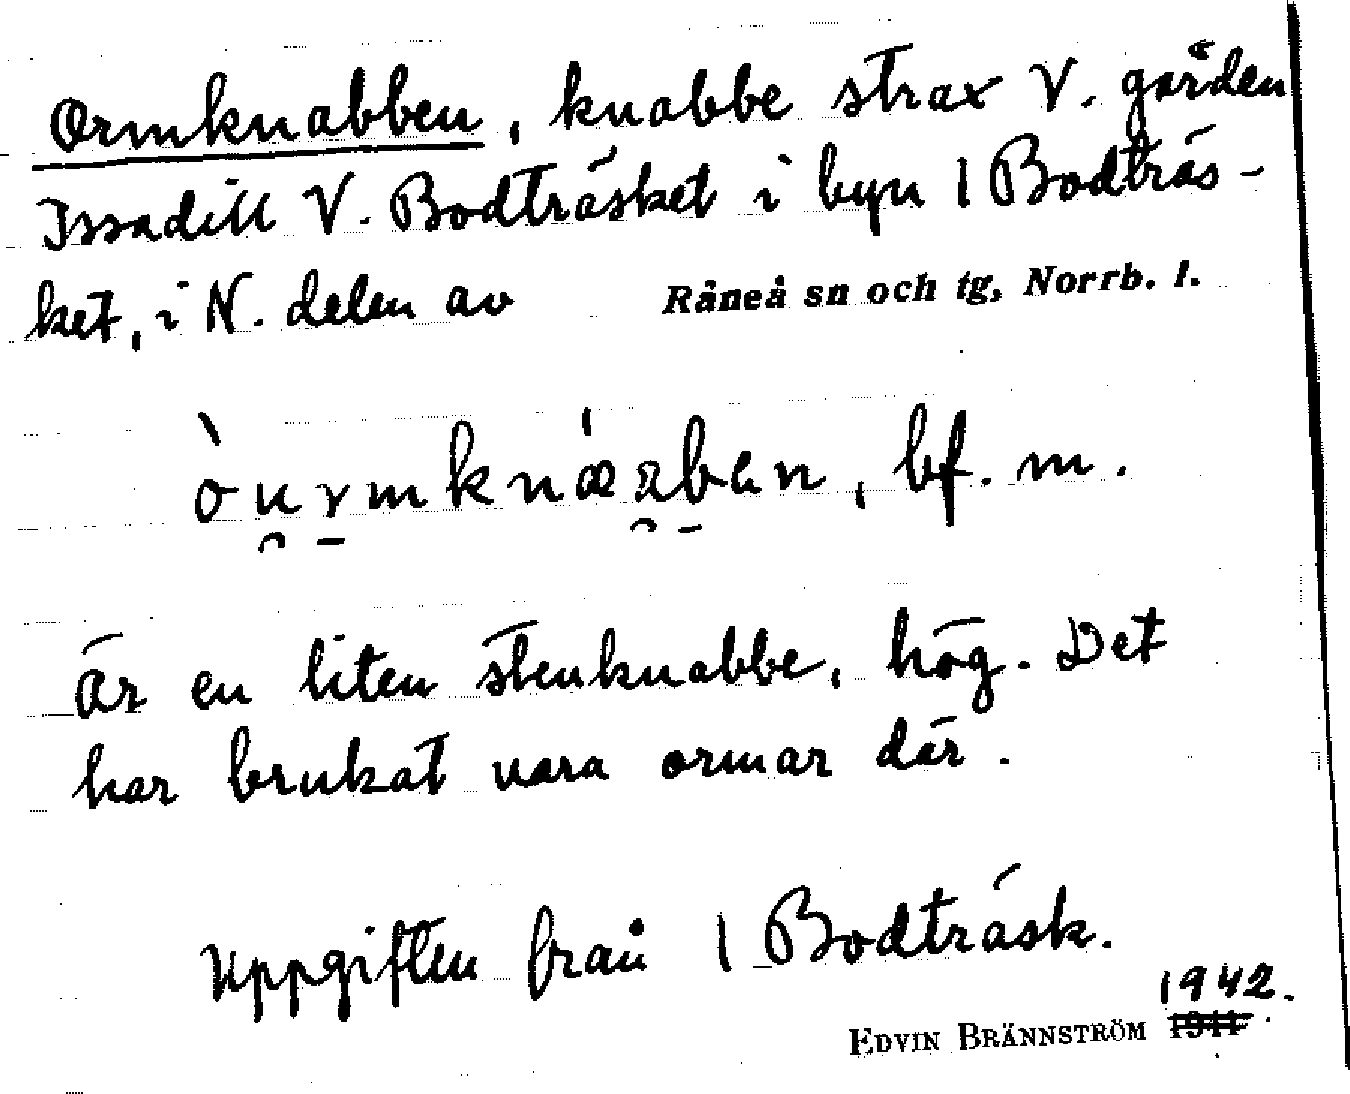 Ormknabben, knabbe strax V. gården
Issadill V. Bodträsket i byn 1 Bodträs-
ket, i N. delen av Råneå sn och tg, Norrb. l.
bf. m.
Är en liten stenknabbe, hög. Det
har brukat vara ormar där.
Uppgiften från 1 Bodträsk.
1942.
EDVIN BRÄNNSTRÖM 1941.